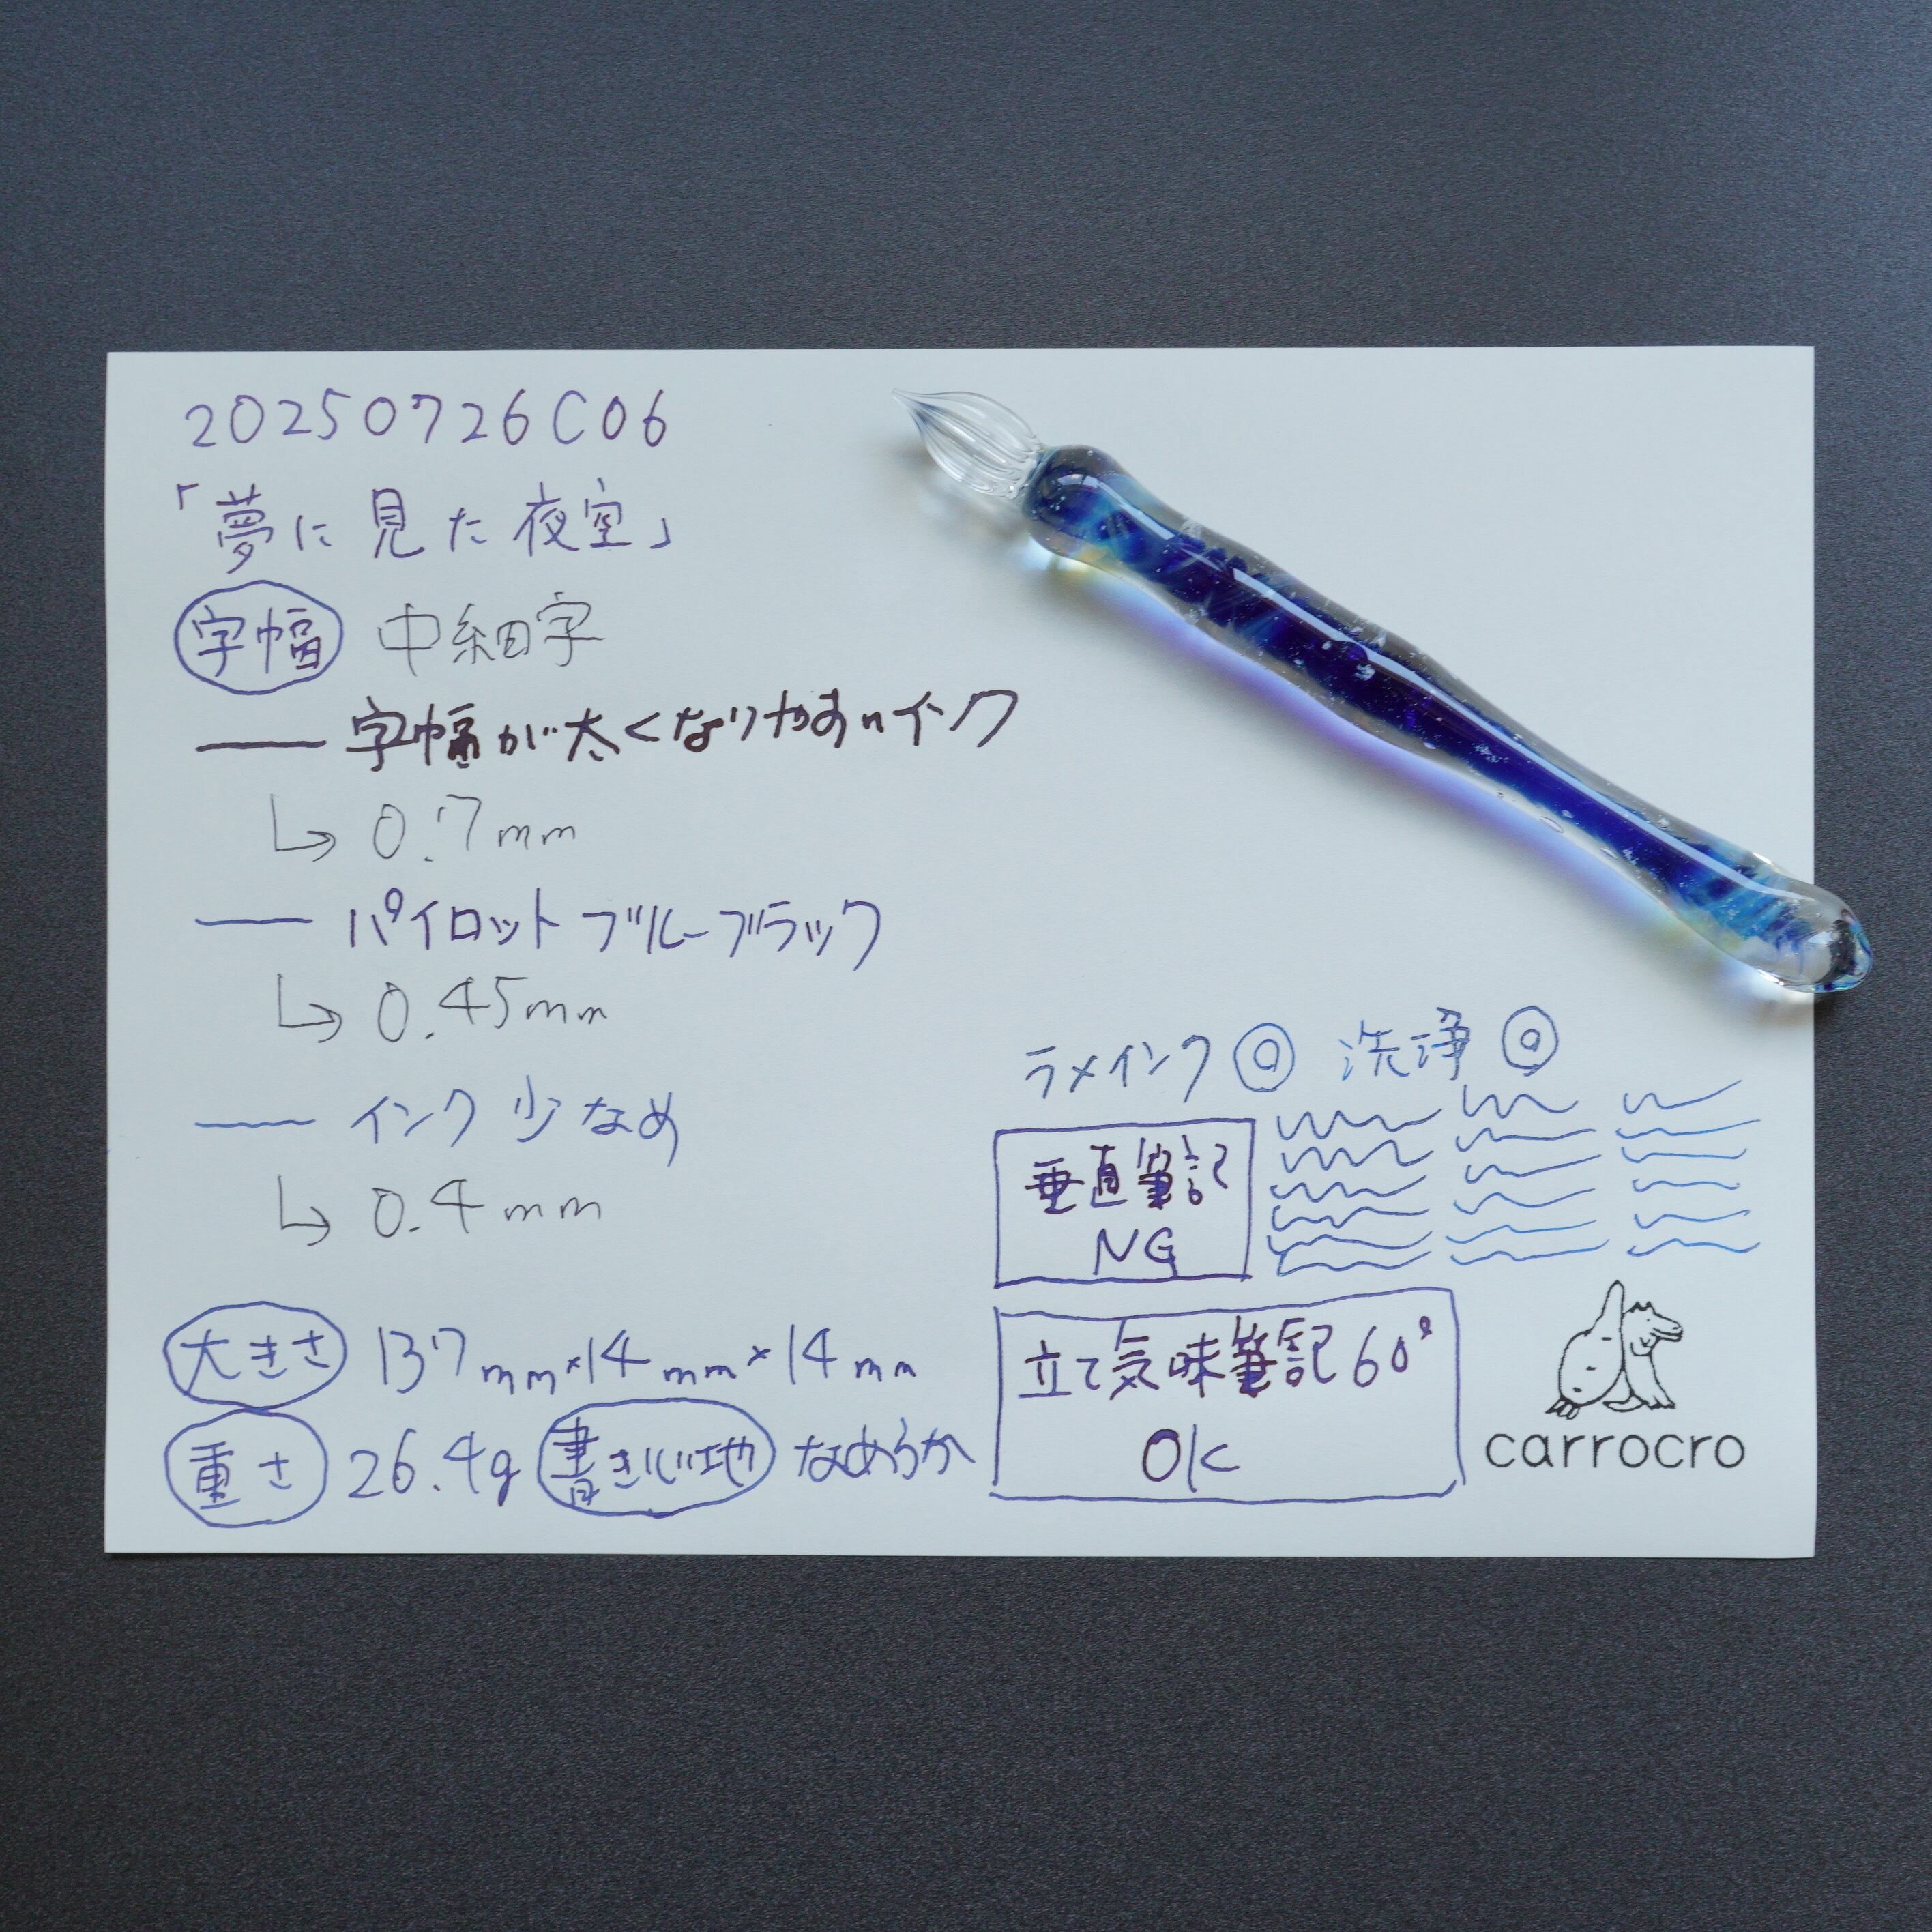 20250726C06
「夢に見た夜空」
字幅 中細字
字幅が太くなりやすいインク
0.7mm
パイロット ブルーブラック
0.45mm
インク少なめ
0.4mm
大きさ 137mm×14mm×14mm
重さ 26.4g 書き心地 なめらか
ラメインク ◎ 洗浄 ◎
垂直筆記
NG
立て気味筆記60°
OK
carrocro